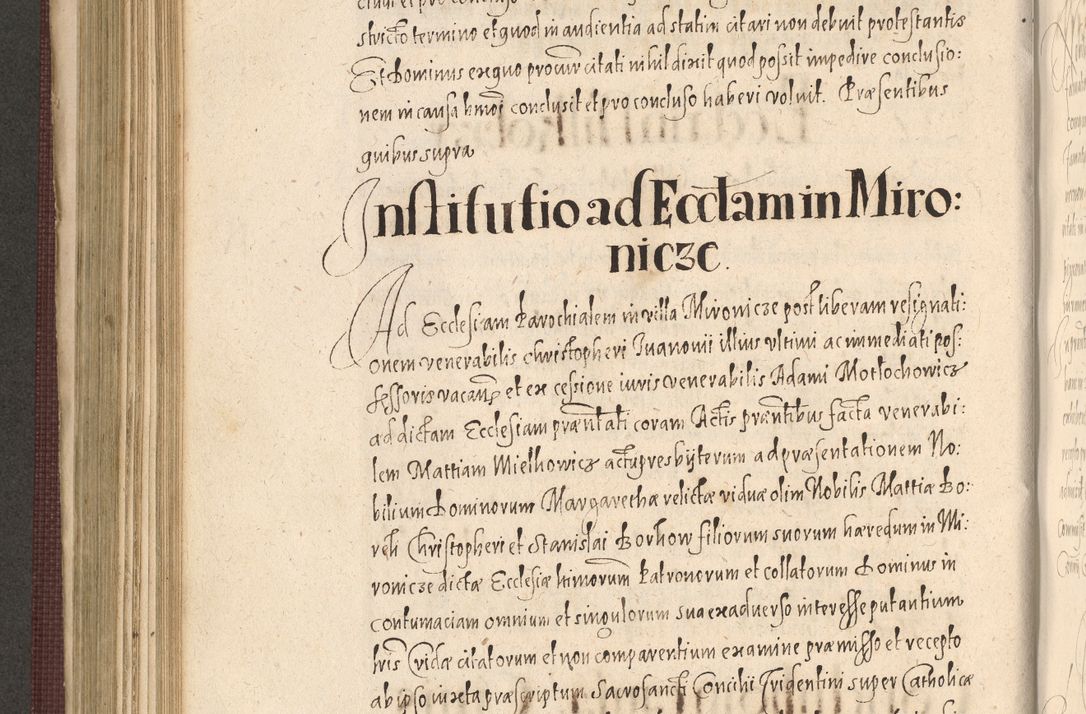 stricto termino et quod in audientia ad statim citari non debuit protestantis
Et Dominus ex quo procur citati nihil dixit quod possit impedire conclusio:
nem in causa hmoi conclusit et pro concluso haberi voluit. Præsentibus
quibus supra
Institutio ad Ecclam in Miro:
nicze.
Ad Ecclesiam Parochialem in villa Mironicze post liberam resignati:
onem venerabilis Christopheri Iuanovii illius ultimi ac immediati pos:
sessoris vacan̄ et ex cessione iuris venerabilis Adami Motlochowicz
ad dictam Ecclesiam præntati coram Actis præntibus facta venerabi:
lem Mattiam Mielhowicz actu presbyterum ad præsentationem No:
bilium Dominorum Margaretha relictæ viduæ olim Nobilis Mattiæ Bo:
reh Christopheri et Stanislai Borhow filiorum suorum hæredum in Mi:
ronicze dictæ Ecclesiæ himorum Patronorum et collatorum Dominus in
contumaciam omnium et singulorum sua ex adverso interesse putantium
hris Cridæ citatorum et non comparentium examine præmisso et recepto
ab ipso iuxta præscriptum Sacrosancti Concilii Tridentini super Catholicæ